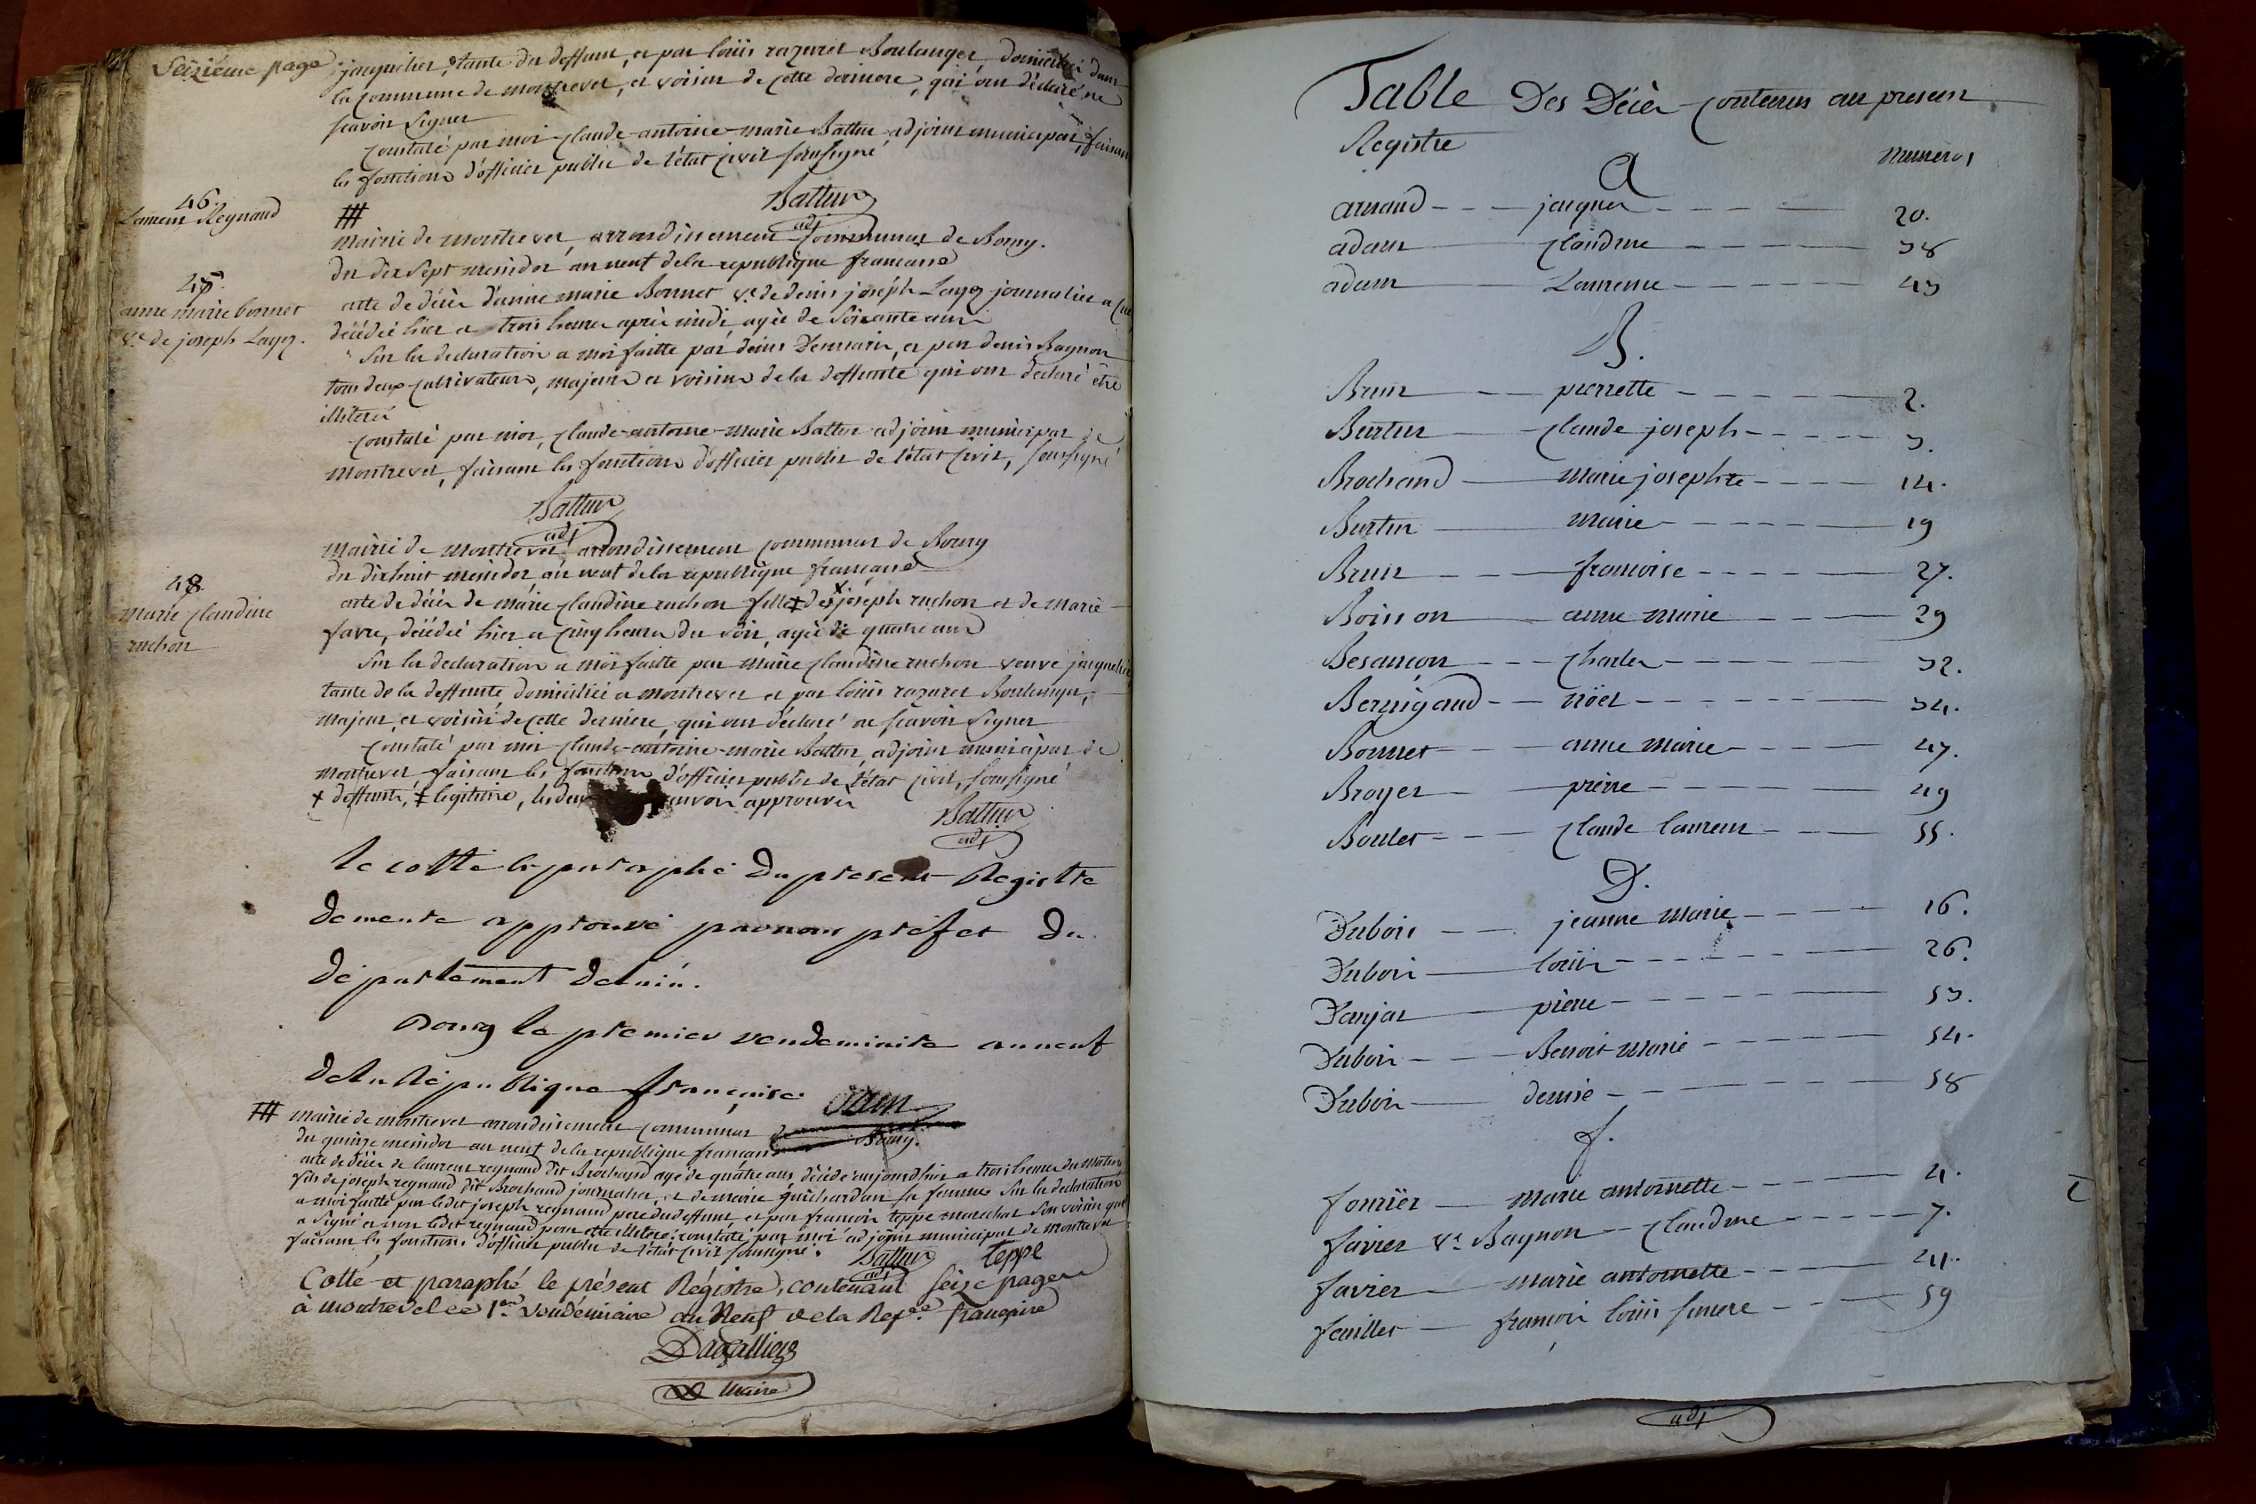 Seizième page
jacquelier, tante du deffunt, et par loüis razurel Boulanger, domicilié dans
la commune de montrevel, et voisin de cette derniere, qui ont déclaré ne
scavoir signer
constaté par moi claude-antoine-marie Battur adjoint municipal, faisant
les fonctions d'officier public de l'état civil soussigné
Battur
adj
46.
Laurent Regnaud
#
mairie de montrevel, arrondissement communal de Bourg.
du dix sept messidor an neuf de la republique francaise
47.
anne marie bonnet
ve. de joseph Layoz.
acte de décès d'anne marie Bonnet ve. de denis joseph Layoz journalier a
décédée hier a trois heures après midi, agée de soixante ans
Sur la declaration a moi faitte par denis et par denis Bagnon
tous deux cultivateurs, majeurs et voisins de la deffunte qui ont declaré être
illiterés
constaté par moi, claude-antoine-marie Battur adjoint municipal de
montrevel, faisant les fonctions d'officier public de l'état civil, soussigné
Battur
adj
mairie de montrevel arrondissement communal de Bourg
du dixhuit messidor, an neuf de la republique française
48.
marie claudine
ruchon
acte de décès de marie claudine ruchon fille ‡ de x joseph ruchon et de marie
favre, décédée hier a cinq heures du soir, agée de quatre ans
Sur la declaration a moi faitte par marie claudine ruchon veuve jacquelier
tante de la deffunte, domiciliée a montrevel et par loüis razurel Boulanger,
majeur, et voisin de cette derniere, qui ont déclaré ne scavoir signer
constaté par moi claude-antoine-marie Battur, adjoint municipal de
montrevel faisant les fonctions d'officier public de l'état civil, soussigné
x deffunt, ‡ legitime, les deux renvois approuvés
Battur
adj
le cotté et parapphé du present Registre
demeure approuvé par nous préfet du
département de l'ain.
Bourg le premier vendemiaire an neuf
de la République française.
Ozun
# mairie de montrevel arrondissement communal de Bourg.
du quinze messidor an neuf de la republique française
acte de décès de laurent regnaud dit Brochand agé de quatre ans décédé aujourdhui a trois heures du matin
fils de joseph regnaud dit Brochand journalier, et de marie guichardan sa femme Sur la declaration
a moi faitte par ledit joseph regnaud pere du deffunt et par francois teppe marechal son voisin qui
a signé et non ledit regnaud pour être illiteré; constaté par moi adjoint municipal de montrevel
faisant les fonctions d'officier public de l'état civil soussigné.
Battur
adj
teppe
Cotté et paraphé le présent Régistre, contenant seize pages
à montrevel ce 1er. vendémiaire an Neuf de la Repe. française
Dagallier
Maire
Table Des Décès contenus au present
Registre
Numeros
A
arnaud --- jacques --- 20.
adam --- claudine --- 38
adam --- Laurence --- 43
B.
Brun --- pierrette --- 2.
Burtin --- claude joseph --- 3.
Brochand --- marie josephte --- 14.
Burtin --- marie --- 19
Brun --- francoise --- 27.
Boisson --- anne marie --- 29
Besançon --- charles --- 32.
Bernigaud --- nöel --- 34.
Bonnet --- anne marie --- 47.
Broyer --- pierre --- 49
Boulet --- claude laurent --- 55.
D.
Dubois --- jeanne marie --- 16.
Dubois --- loüis --- 26.
Danjat --- pierre --- 53.
Dubois --- Benoit marie --- 54.
Dubois --- denise --- 58
f.
fourrier --- marie antoinette --- 4.
favier ve. Bagnon --- claudine --- 7.
favier --- marie antoinette --- 41.
feuillet --- francois loüis --- 59
adj